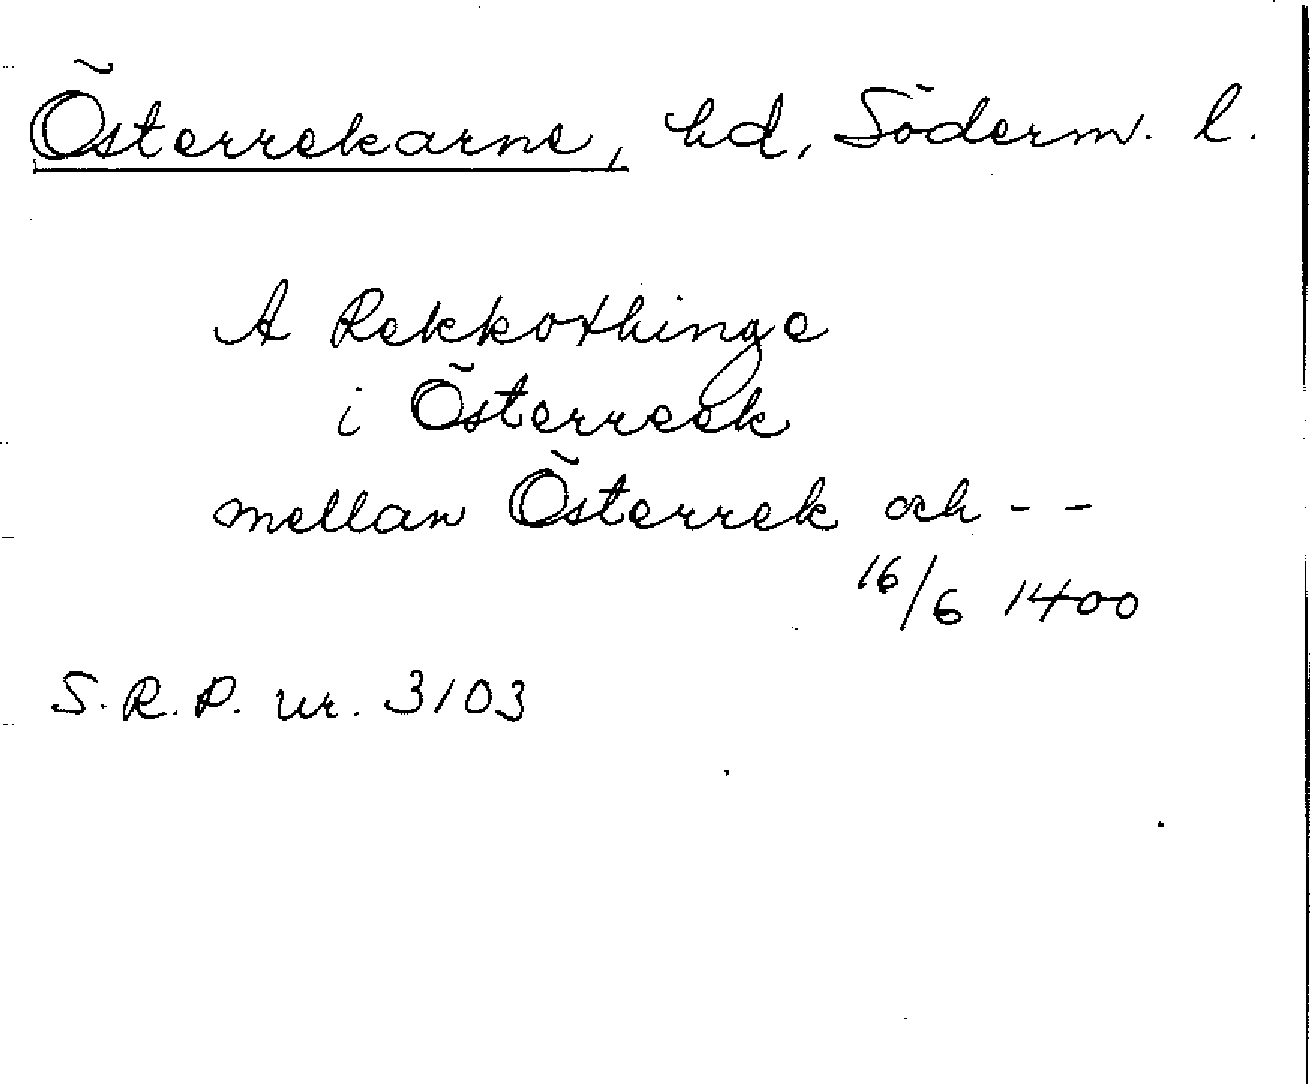 Österrekarne, hd, Söderm. l.
A Rekkothinge
i Österreek
mellan Österrek och - -
16/6 1400
S.R.P. nr. 3103